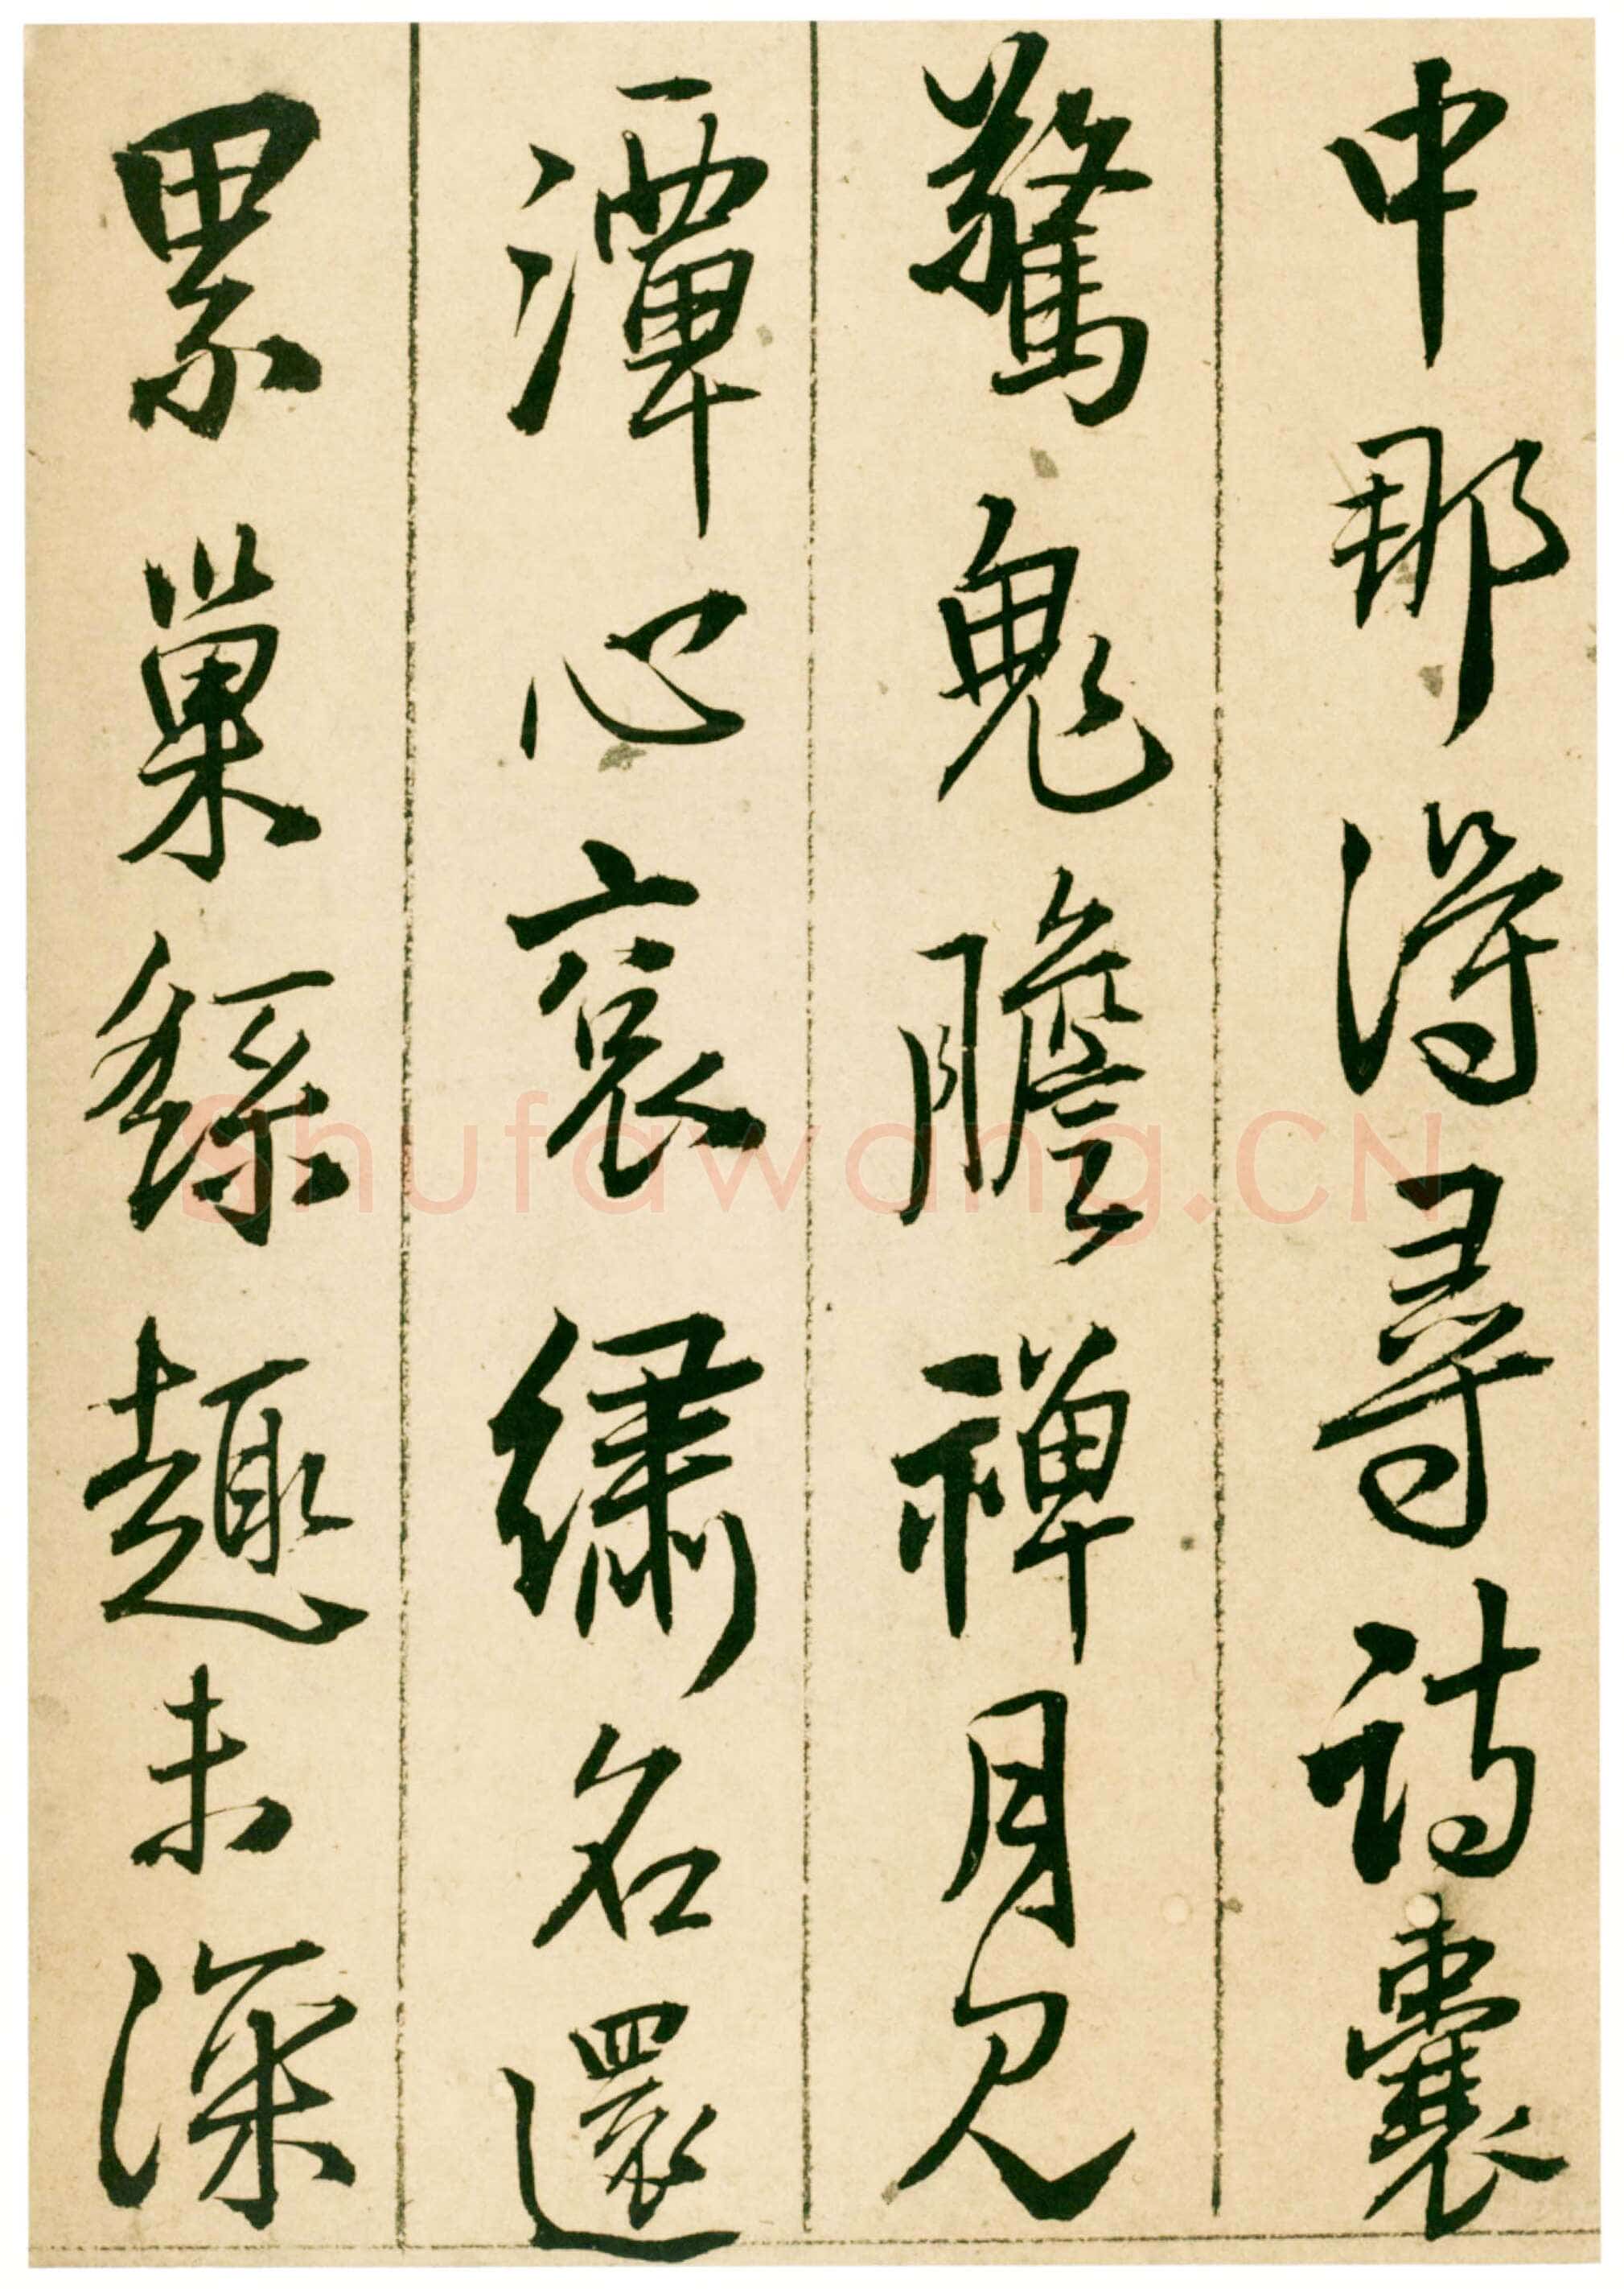 中那得尋詩囊
驚鬼膽禪月見
潭心裒繡名還
累巢繇趣未深
Shufawang.CN